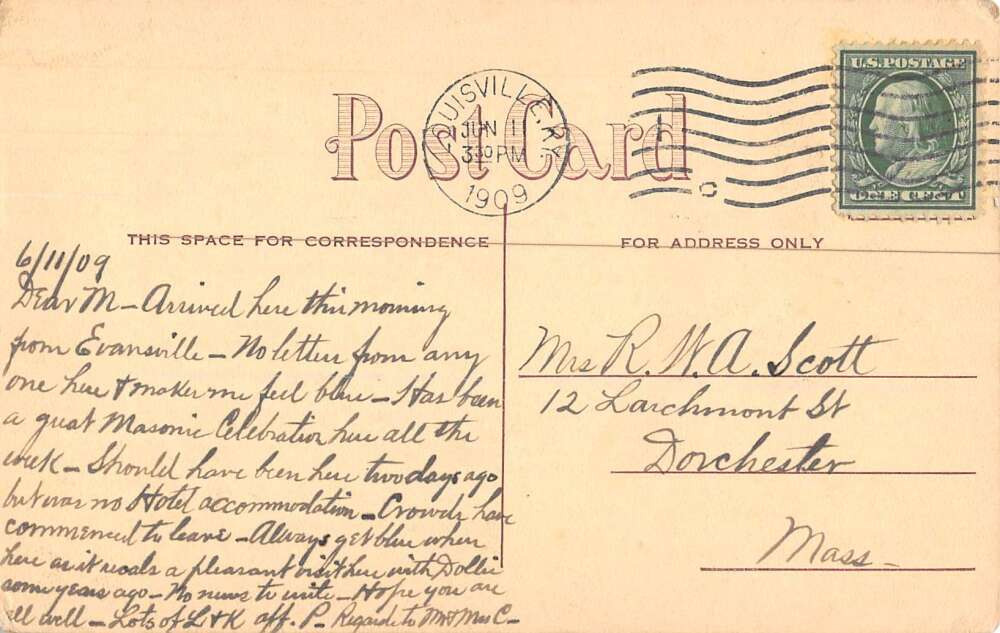 Post Card
LOUISVILLE, KY.
JUN 11
3 30 PM
1909
U.S. POSTAGE
ONE CENT
THIS SPACE FOR CORRESPONDENCE
FOR ADDRESS ONLY
6/11/09
Dear M - Arrived here this morning
from Evansville - No letters from any
one here & makes me feel blue - Has been
a great Masonic Celebration here all the
week - Should have been here two days ago
but was no Hotel accommodation - Crowds have
commenced to leave - Always get blue when
here as it recals a pleasant visit here with Dollie
some years ago - No news to write - Hope you are
all well - Lots of L & K aff. P - Regards to Mr & Mrs C -
Mrs R. W. A. Scott
12 Larchmont St
Dorchester
Mass -